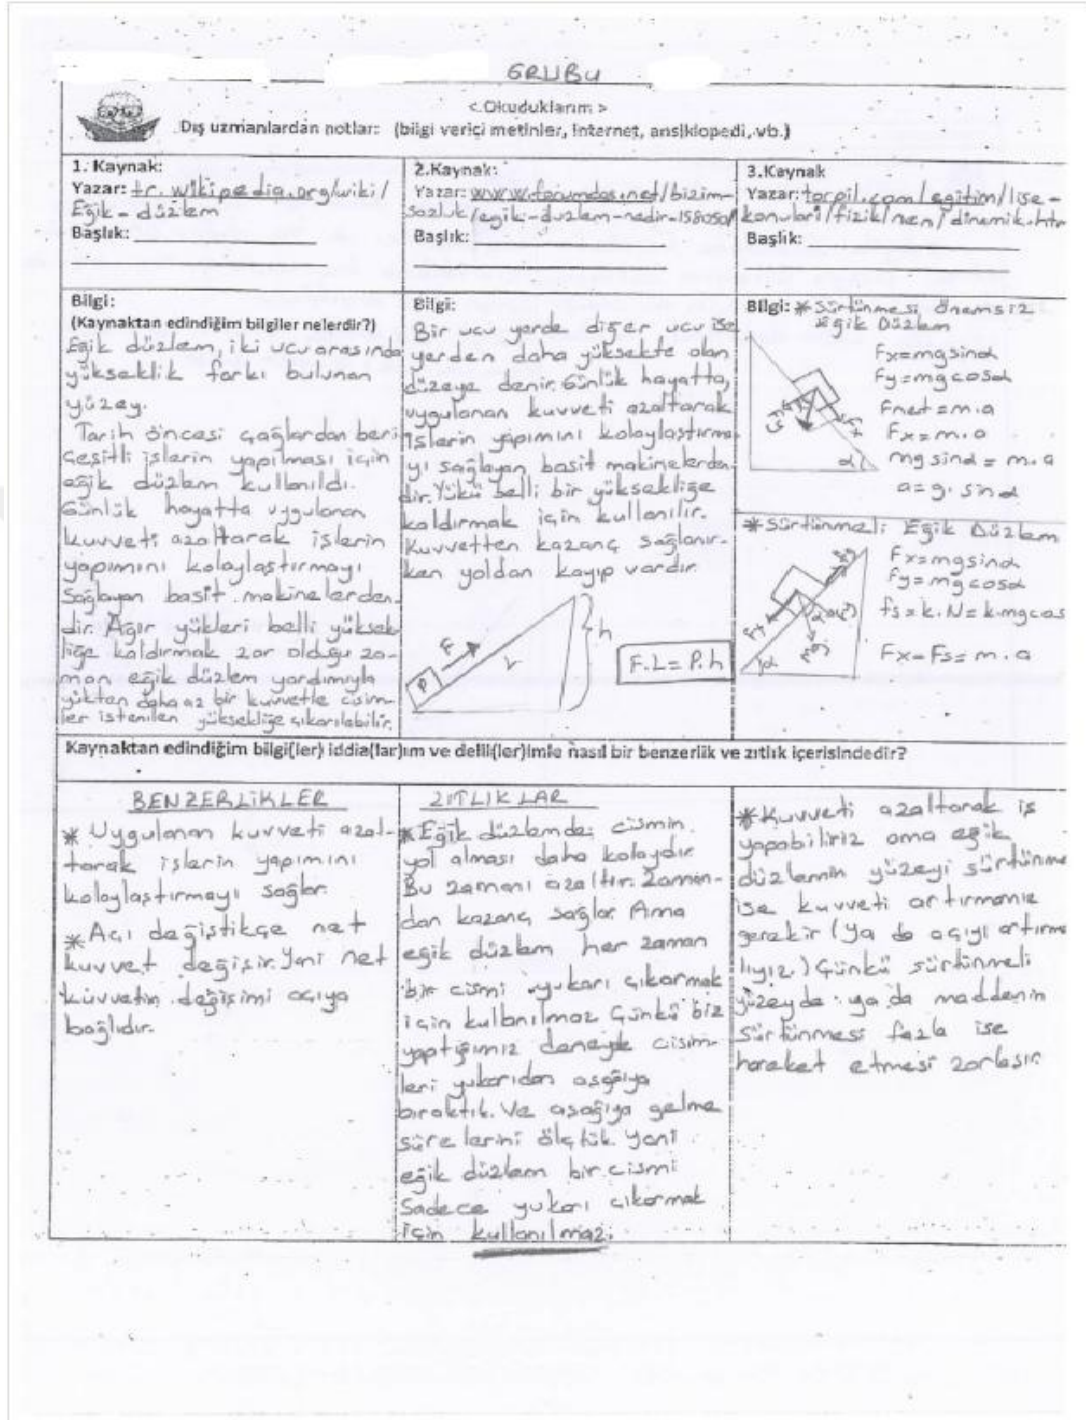 GRUBU
< Okuduklarım >
Dış uzmanlardan notlar: (bilgi verici metinler, internet, ansiklopedi, vb.)
1. Kaynak:
Yazar: tr.wikipedia.org/wiki/
Eğik-düzlem
Başlık:
2.Kaynak:
Yazar: www.forumdas.net/bizim-
sozluk/egik-duzlem-nedir-158050/
Başlık:
3.Kaynak
Yazar: torpil.com/egitim/lise-
konulari/fizik/nen/dinemik.htm
Başlık:
Bilgi:
(Kaynaktan edindiğim bilgiler nelerdir?)
Eğik düzlem, iki ucu arasında
yükseklik farkı bulunan
yüzey.
Tarih öncesi çağlardan beri
çeşitli işlerin yapılması için
eğik düzlem kullanıldı.
Günlük hayatta uygulanan
kuvveti azaltarak işlerin
yapımını kolaylaştırmayı
sağlayan basit makinelerden-
dir. Ağır yükleri belli yüksek-
liğe kaldırmak zor olduğu za-
man eğik düzlem yardımıyla
yükten daha az bir kuvvetle cisim-
ler istenilen yüksekliğe çıkarılabilir.
Bilgi:
Bir ucu yerde diğer ucu ise
yerden daha yüksekte olan
düzeye denir. Günlük hayatta,
uygulanan kuvveti azaltarak
işlerin yapımını kolaylaştırma-
yı sağlayan basit makinelerden-
dir. Yükü belli bir yüksekliğe
kaldırmak için kullanılır.
Kuvvetten kazanç sağlanır-
ken yoldan kayıp vardır.
F
L
P
h
F.L = P.h
Bilgi: * Sürtünmesi Önemsiz
Eğik Düzlem
Fx=mgsinα
Fy=mgcosα
Fnet=m.a
Fx=m.a
mgsinα = m.a
a=g.sinα
α
* Sürtünmeli Eğik Düzlem
Fx=mgsinα
Fy=mgcosα
fs=k.N=k.mgcos
Fx-Fs=m.a
Fx
α
Kaynaktan edindiğim bilgi(ler) iddia(lar)ım ve delil(ler)imle nasıl bir benzerlik ve zıtlık içerisindedir?
BENZERLİKLER
* Uygulanan kuvveti azal-
tarak işlerin yapımını
kolaylaştırmayı sağlar.
* Açı değiştikçe net
kuvvet değişir. Yani net
kuvvetin değişimi açıya
bağlıdır.
ZITLIKLAR
* Eğik düzlemde cismin
yol alması daha kolaydır.
Bu zamanı azaltır. Zaman-
dan kazanç sağlar. Ama
eğik düzlem her zaman
bir cismi yukarı çıkarmak
için kullanılmaz. Çünkü biz
yaptığımız deneyde cisim-
leri yukarıdan aşağıya
bıraktık. Ve aşağıya gelme
sürelerini ölçtük. Yani
eğik düzlem bir cismi
sadece yukarı çıkarmak
için kullanılmaz.
* Kuvveti azaltarak iş
yapabiliriz ama eğik
düzlemin yüzeyi sürtünme
ise kuvveti artırmamız
gerekir (ya da açıyı artırma
lıyız.) Çünkü sürtünmeli
yüzeyde ya da maddenin
sürtünmesi fazla ise
hareket etmesi zorlaşır.